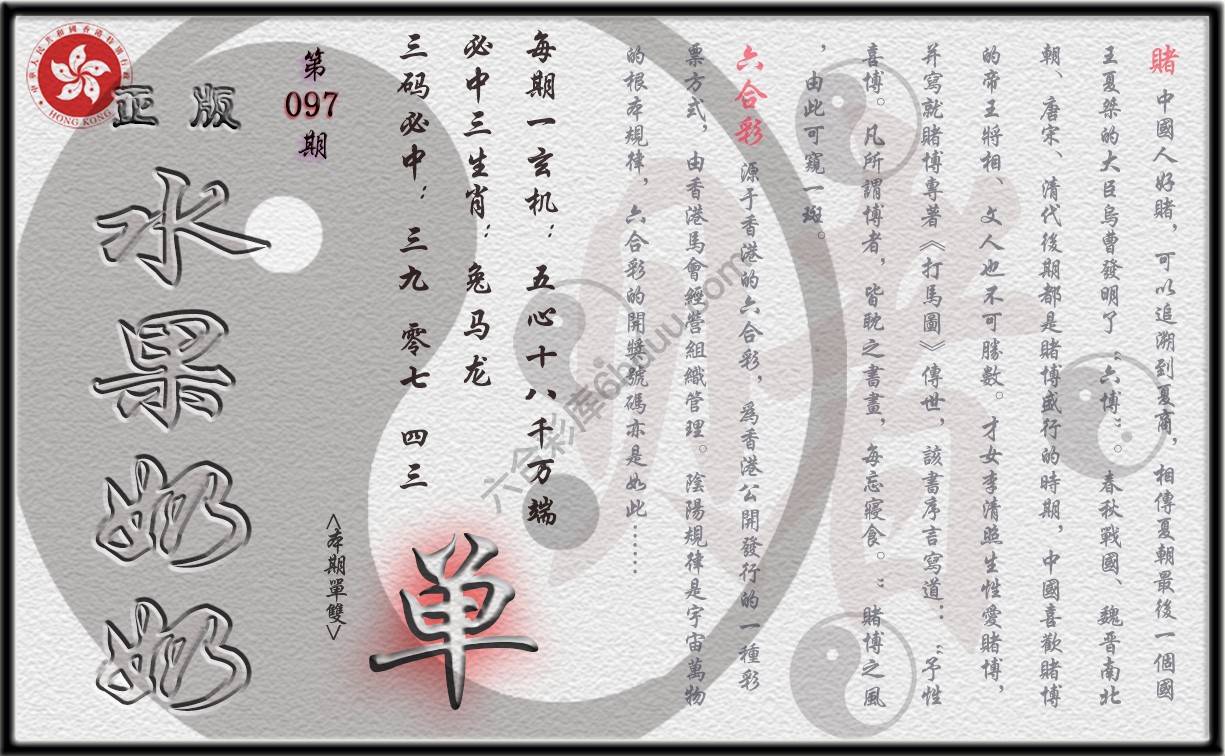 賭 中國人好賭，可以追溯到夏商，相傳夏朝最後一個國
王夏桀的大臣烏曹發明了“六博”。春秋戰國、魏晉南北
朝、唐宋、清代後期都是賭博盛行的時期，中國喜歡賭博
的帝王將相、文人也不可勝數。才女李清照生性愛賭博，
并寫就賭博專著《打馬圖》傳世，該書序言寫道：“予性
喜博。凡所謂博者，皆耽之書畫，每忘寢食。”賭博之風
，由此可窺一斑。
六合彩 源于香港的六合彩，爲香港公開發行的一種彩
票方式，由香港馬會經營組織管理。陰陽規律是宇宙萬物
的根本規律，六合彩的開獎號碼亦是如此……
每期一玄机：五心十八千万端
必中三生肖：兔马龙
三码必中：三九 零七 四三
单
<本期單雙>
第
097
期
正版
水果奶奶
中華人民共和國香港特別行政區
HONG KONG
六合彩库6hduu.com